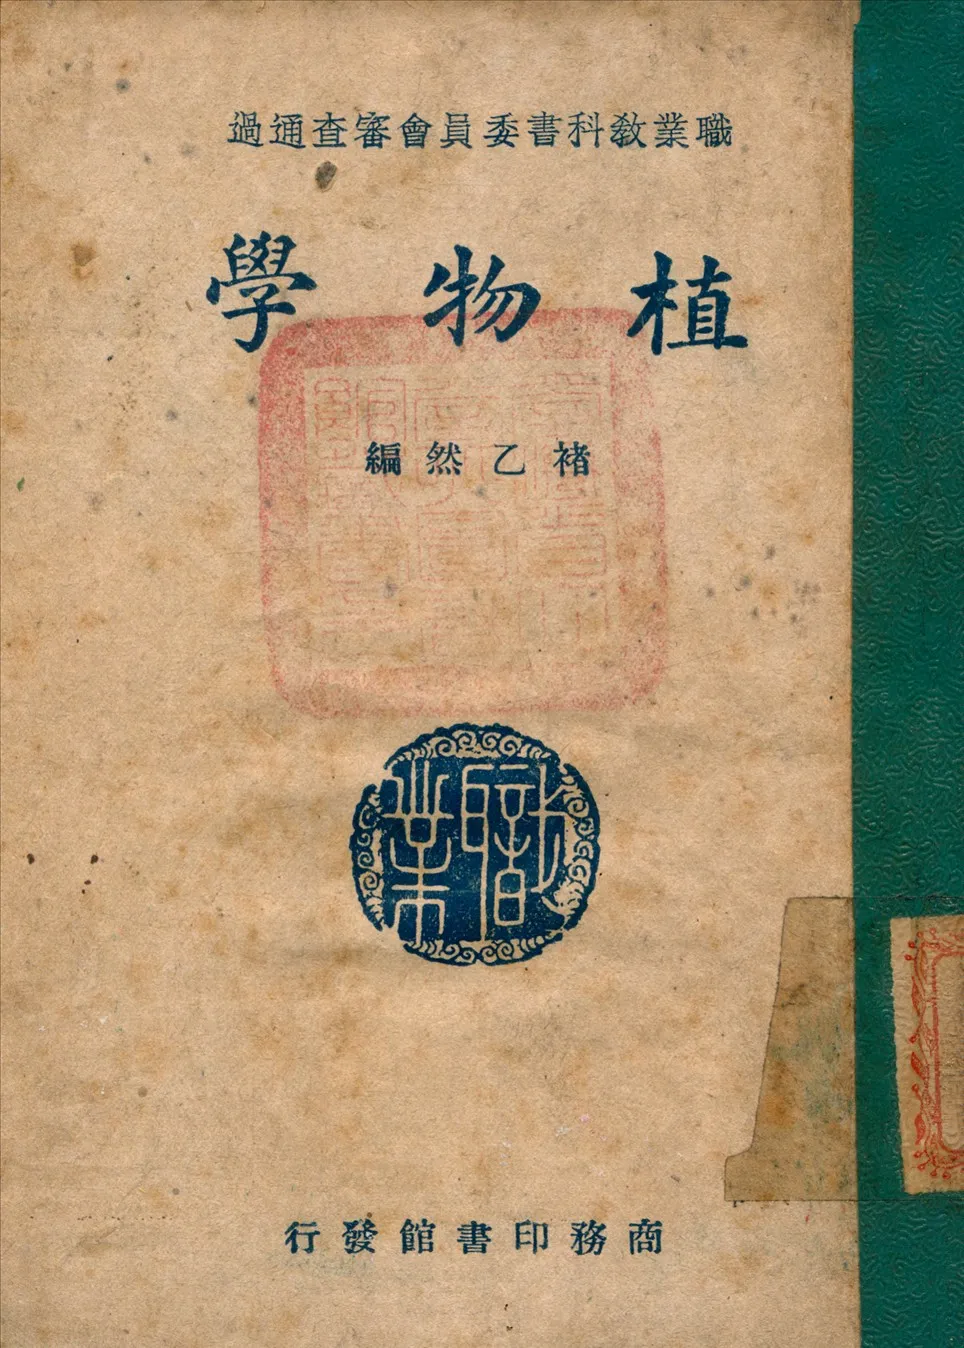 職業教科書委員會審查通過
植物學
褚乙然編
職業
商務印書館發行